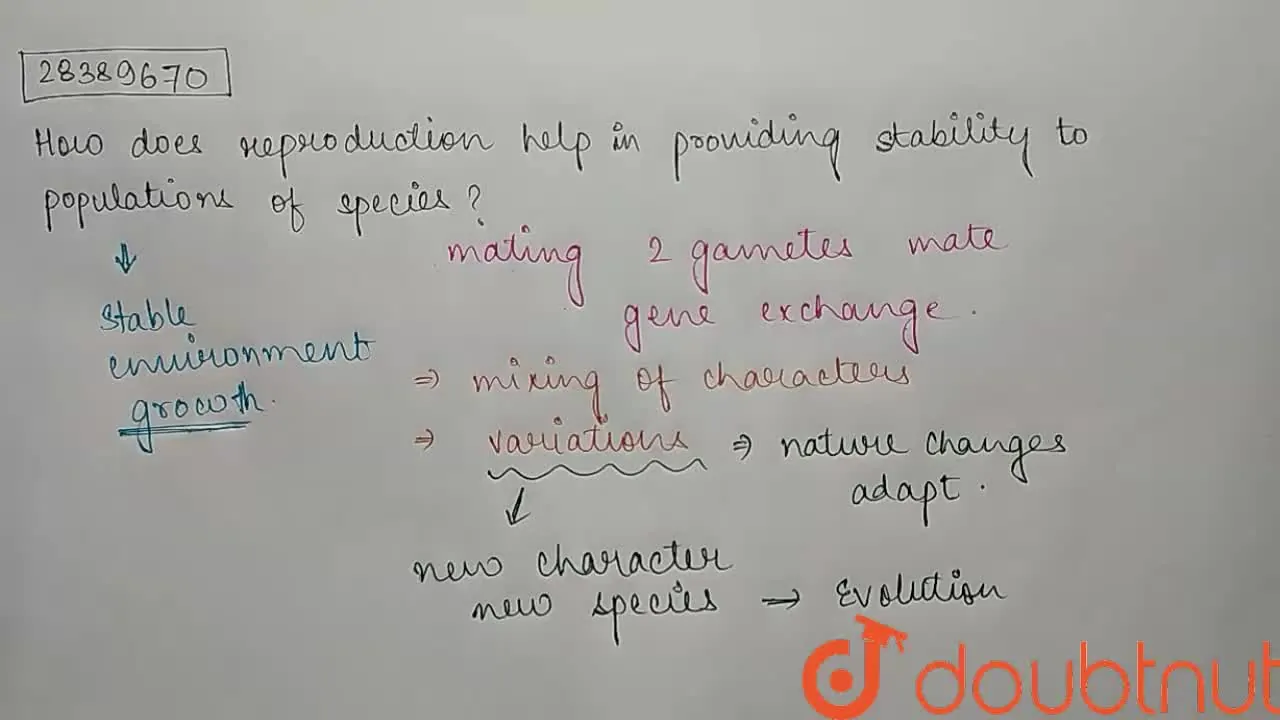 28389670
How does reproduction help in providing stability to
populations of species?
⇓
stable
environment
growth.
mating 2 gametes mate
gene exchange.
⇒ mixing of characters
⇒ variations ⇒ nature changes
adapt.
↓
new character
new species → Evolution
doubtnut